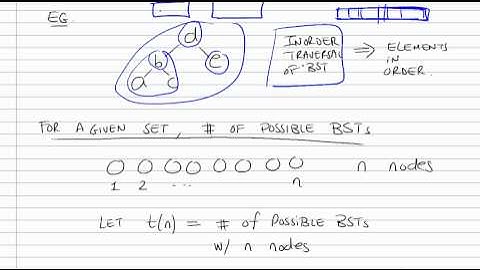 EG.
d
b
e
a
c
INORDER
TRAVERSAL
OF BST
⇒ ELEMENTS
IN
ORDER.
FOR A GIVEN SET, # OF POSSIBLE BSTs
n nodes
1 2 ... n
LET t(n) = # of POSSIBLE BSTs
w/ n nodes